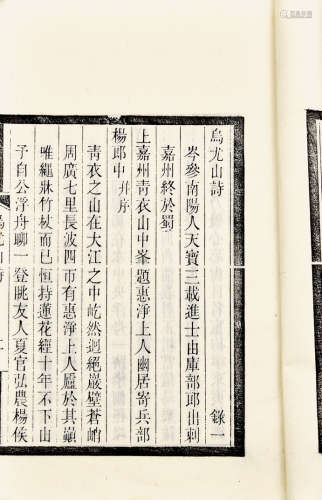 烏尤山詩 錄一
岑參南陽人天寶三載進士由庫部郎出刺
嘉州終於蜀
上嘉州青衣山中峯題惠淨上人幽居寄兵部
楊郎中幷序
青衣之山在大江之中屹然迥絕巖壁蒼峭
周廣七里長波四匝有惠淨上人廬於其巔
唯繩牀竹杖而已恒持蓮花經十年不下山
予自公浮舟聊一登眺友人夏官弘農楊侯